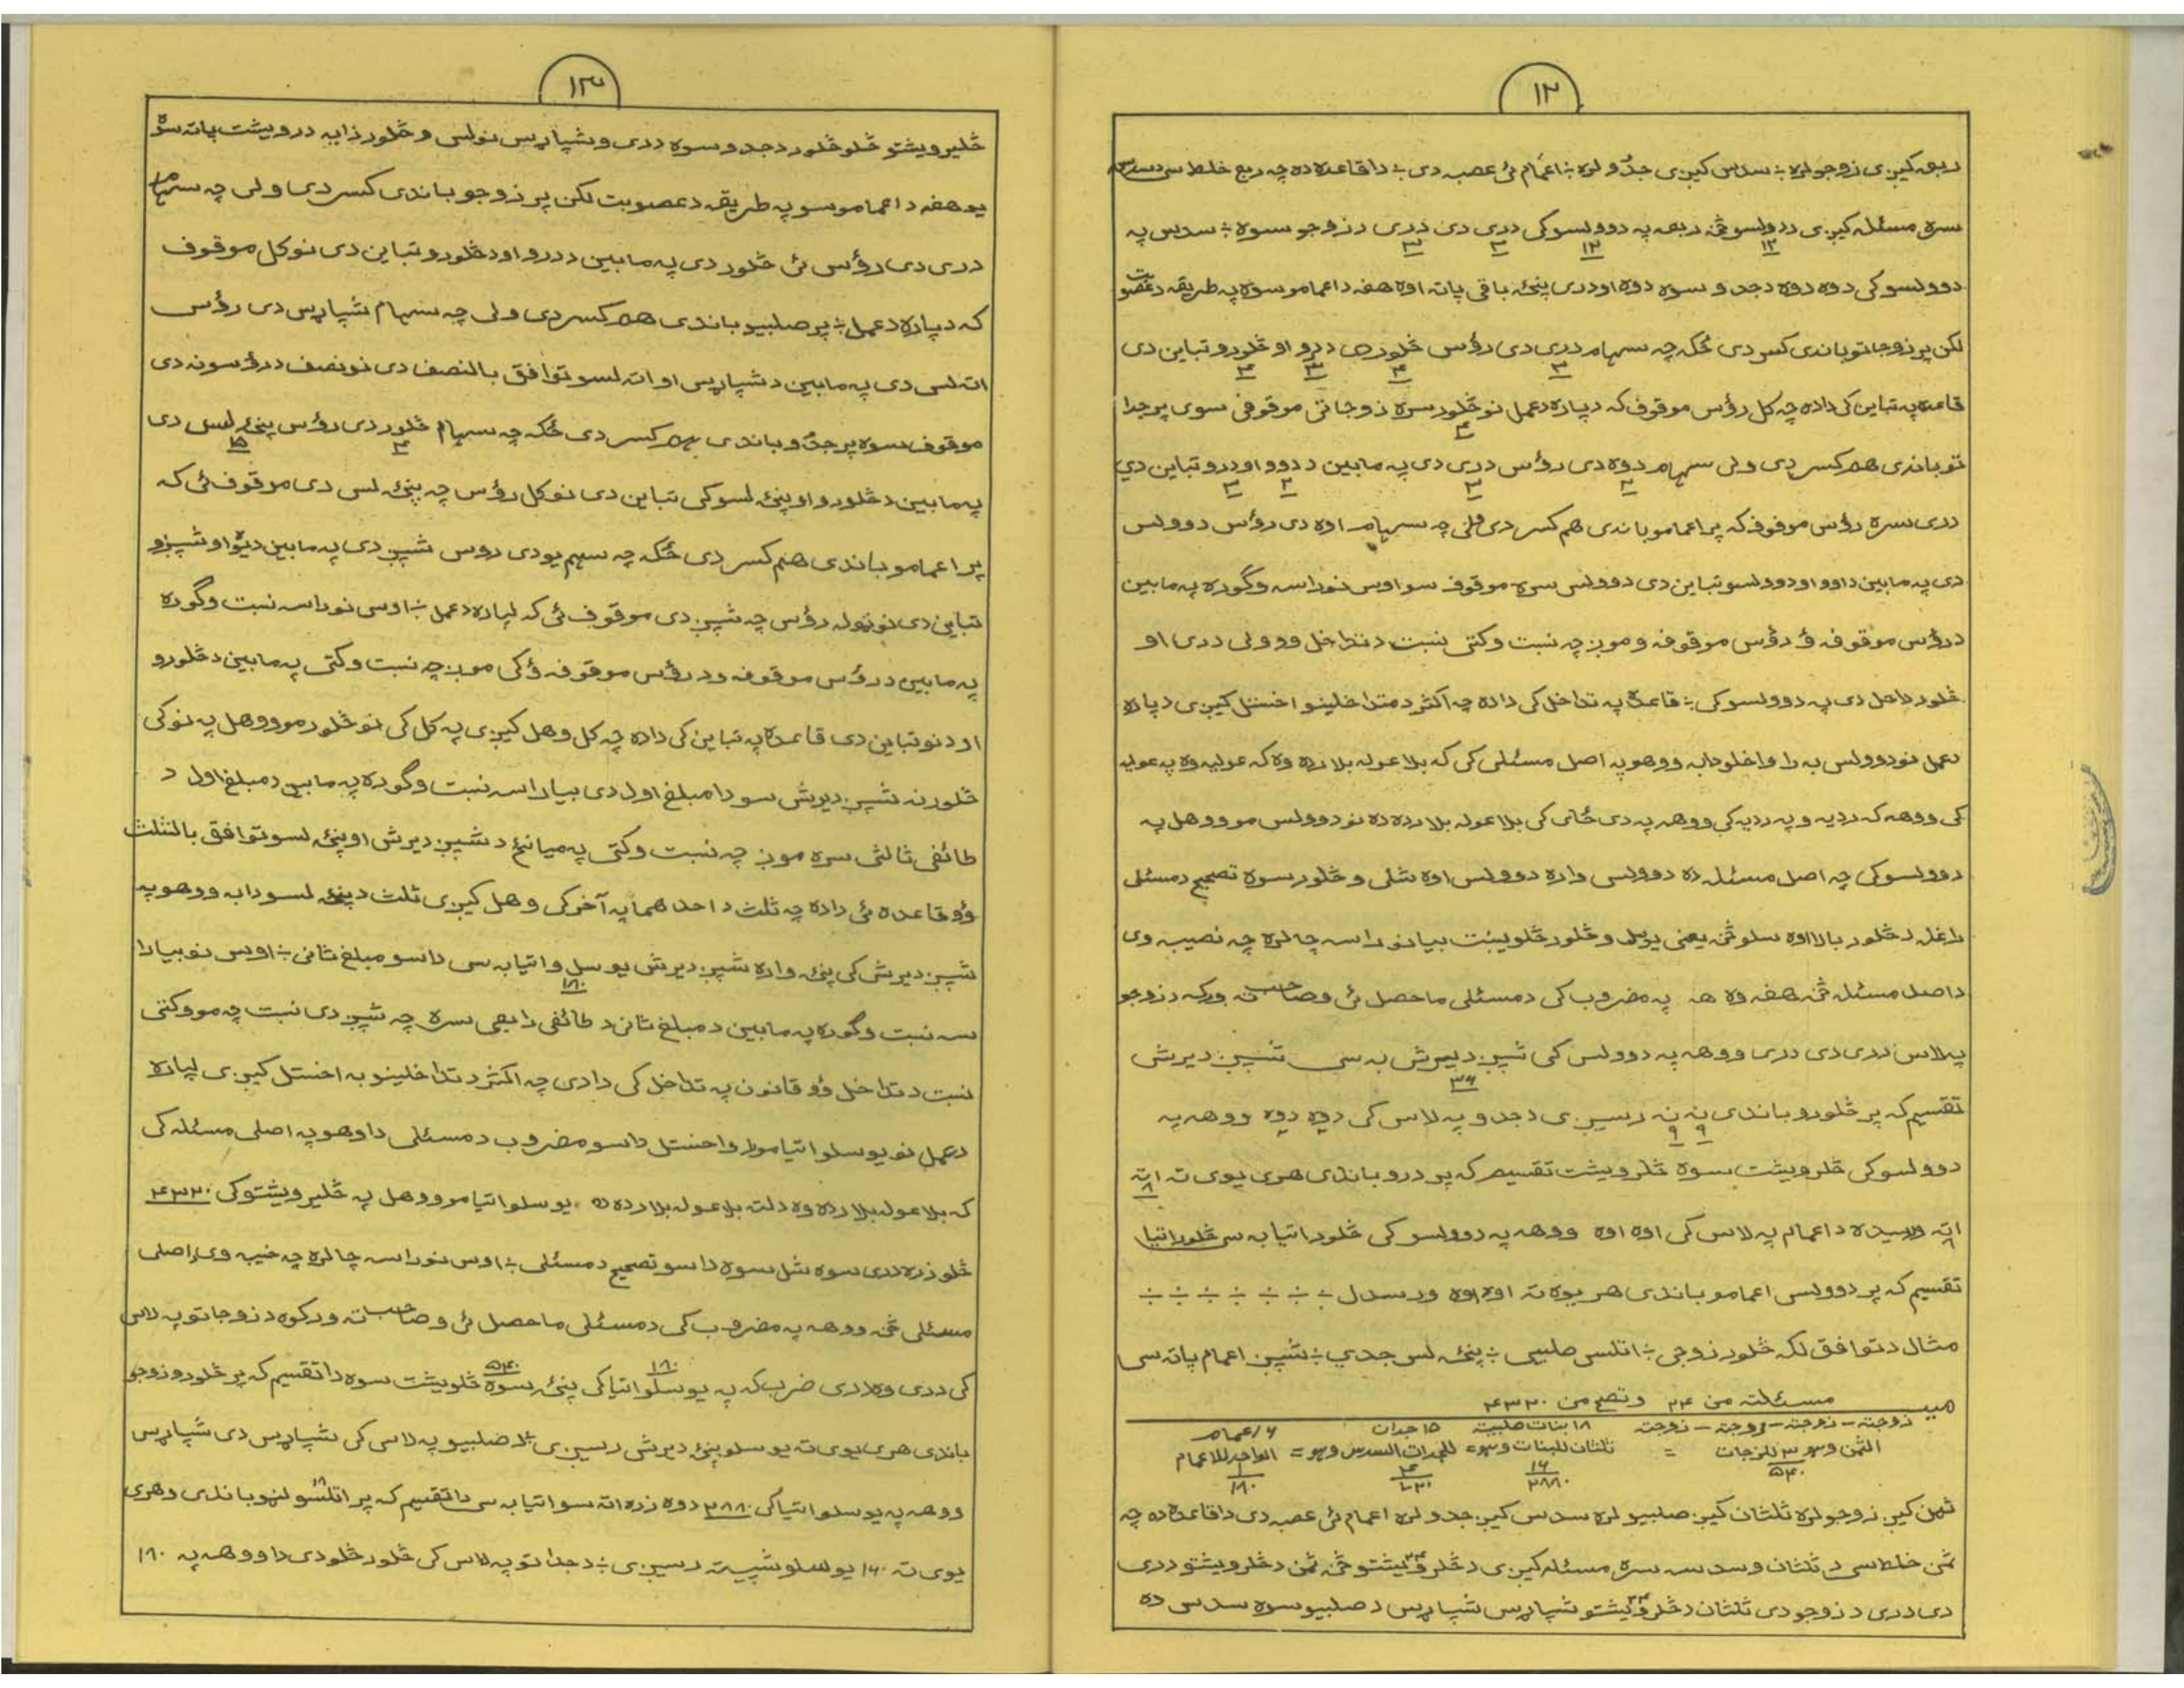 ١٢
ربع کیږی زوجو لره ÷ سدس کیږی جدو لره ÷ اعمام ئی عصبه دی ÷ دا قاعده ده چه ربع خلط سی د سدس
سره مسئله کیږی ددولسو څخه ربعه په دوولسو کی دری دی دری د زوجو سوه ÷ سدس په
١٢ ١٢ ٣ ٣
دوولسو کی دوه دوه دجدو سوه دوه اودری پنځه باقی پاته اوه هغه داعمامو سوه په طریقه دعصوبت
لکن پر زوجاتو باندی کسر دی ځکه چه سهام دری دی رؤس څلور دی درو او څلورو تباین دی
٣ ٤ ٣ ٤
قاعده په تباین کی داده چه کل رؤس موقوف که دپاره دعمل نو څلور سره زوجاتی موقوفی سوی پر جدا
٤
تو باندی هم کسر دی ولی سهام دوه دی رؤس دری دی په مابین ددوو او درو تباین دی
٢ ٣ ٢ ٣
دری سره رؤس موقوف که پر اعمامو باندی هم کسر دی ولی چه سهام اوه دی رؤس دوولس
دی په مابین داوو او دوولسو تباین دی دوولس سره موقوف سو اوس نو راسه وگوره په مابین
درؤس موقوفه ؤ درؤس موقوفه و موږ چه نسبت وکتی نسبت دتداخل وو ولی دری او
څلور داخل دی په دوولسو کی ÷ قاعده په تداخل کی داده چه اکثر د متداخلینو اخستل کیږی دپاره
دعمل نو دوولس به را واخلو دابه ووهو په اصل مسئلی کی که بلا عوله بلا رده وه که عولیه وه په عولیه
کی ووهه که ردیه وه په ردیه کی ووهه په دی ځای کی بلا عوله بلا رده ده نو دوولس مو ووهل په
دوولسو کی چه اصل مسئله ده دوولس واره دوولس اوه شلی و څلور سوه تصحیح دمسئلی
داغله دڅلور بالا اوه سلو څخه یعنی یوسل و څلور څلویښت بیا نو راسه چا لره چه نصیب وی
داصل مسئله څخه هغه وه هه په مضروب کی دمسئلی ماحصل ئی وصاحب ته ورکه دزوجو
په لاس دری دی دری ووهه په دوولس کی شپږ دیرش به سی شپږ دیرش
٣٦
تقسیم که پر څلورو باندی نه نه رسیږی دجدو په لاس کی دوه دوه ووهه په
٩ ٩
دوولسو کی څلرویشت سوه څلرویشت تقسیم که پر درو باندی هری یوی ته اته
٨
اته ورسیده داعمام په لاس کی اوه اوه ووهه په دوولسو کی څلور اتیا به سی څلور اتیا
تقسیم که پر دوولس اعمامو باندی هر یوه ته اوه اوه ورسدل ÷ ÷ ÷ ÷ ÷ ÷ ÷
مثال دتوافق لکه څلور زوجی ÷ اتلس صلبیی ÷ پنځه لس جدی ÷ شپږ اعمام پاته سی
میـ مسئلته من ٢٤ وتصح من ٤٣٢٠
زوجته – زوجته – زوجته – زوجته ١٨ بنات صلبیة ١٥ جدات ٦ اعمام
الثمن وهو ٣ للزوجات = ثلثان للبنات وهو = للجدات السدس وهو = الواحد للاعمام
٥٤٠ ١٦ ٢٨٨٠ ٤ ٧٢٠ ١ ١٨٠
ثمن کیږ زوجو لره ثلثان کیږ صلبیو لره سدس کیږ جدو لره اعمام ئی عصبه دی دا قاعده ده چه
ثمن خلط سی د ثلثان و سدسه سره مسئله کیږی دڅلرویشتو څخه ثمن دڅلرویشتو دری
دی دری د زوجو دی ثلثان دڅلرویشتو شپاړس شپاړس د صلبیو سوه سدس ده
١٣
څلیرویشتو څلو څلور دجدو سوه دری وشپاړس نولس و څلور ذابه درویشت پاته سوه
یو هغه داعمامو سو په طریقه دعصوبت لکن پر زوجو باندی کسر دی ولی چه سهام
دری دی رؤس ئی څلور دی په مابین ددرو او دڅلورو تباین دی نو کل موقوف
که دپاره دعمل ÷ پر صلبیو باندی هم کسر دی ولی چه سهام شپاړس دی رؤس
اته لس دی په مابین دشپاړس او اته لسو توافق بالنصف دی نو نصف درؤسونه دی
موقوف سوه پر جدو باندی هم کسر دی ځکه چه سهام څلور دی رؤس پنځه لس دی
٤ ١٥
په مابین دڅلورو او پنځه لسو کی تباین دی نو کل رؤس چه پنځه لس دی موقوف ئی که
پر اعمامو باندی هم کسر دی ځکه چه سهم یو دی روس شپږ دی په مابین دیوه او شپږو
تباین دی نو ټوله رؤس چه شپږ دی موقوف ئی که لپاره دعمل ÷ اوس نو راسه نسبت وگوره
په مابین درؤس موقوفه ود رؤس موقوفه ؤ کی موږ چه نسبت وکتی په مابین دڅلورو
او دنو تباین دی قاعده په تباین کی داده چه کل وهل کیږی په کل کی نو څلور مو ووهل په نو کی
څلور نه شپږ دیرش سو دا مبلغ اول دی بیا راسه نسبت وگوره په مابین دمبلغ اول د
طائفی ثالثی سره موږ چه نسبت وکتی په میانځ دشپږ دیرش او پنځه لسو توافق بالثلث
ؤو قاعده ئی داده چه ثلث د احدهما په آخر کی وهل کیږی ثلث دپنځه لسو دابه ووهو په
شپږ دیرش کی پنځه واره شپږ دیرش یو سل و اتیا به سی داسو مبلغ ثانی ÷ اوس نو بیا را
١٨٠
سه نسبت وگوره په مابین دمبلغ ثانی د طائفی رابعی سره چه شپږ دی نسبت چه مو وکتی
نسبت د تداخل ؤو قانون په تداخل کی دادی چه اکثر د تداخلینو به اخستل کیږی لپاره
دعمل نو یو سلو اتیا مو را واخستل داسو مضروب دمسئلی داوهو په اصلی مسئله کی
که بلا عوله بلا رده وه دلته بلا عوله بلا رده ده یو سلو اتیا مو ووهل په څلیرویشتو کی ٤٣٢٠
څلور زره دری سوه شل سوه داسو تصحیح دمسئلی ÷ اوس نو راسه چا لره چه نصیب وی داصلی
مسئلی څخه ووهه په مضروب کی دمسئلی ماحصل ئی وصاحب ته ورکوه دزوجاتو په لاس
کی دری وه دری ضرب که په یو سلو اتیا کی پنځه سوه څلویښت سوه دا تقسیم که پر څلورو زوجو
١٨٠ ٥٤٠
باندی هری یوی ته یو سلو پنځه دیرش رسیږی د صلبیو په لاس کی شپاړس دی شپاړس
ووهه په یو سلو اتیا کی ٢٨٨٠ دوه زره اته سو اتیا به سی دا تقسیم که پر اتلسو لنهو باندی وهری
یوی ته ١٦٠ یو سلو شپیته رسیږی ÷ دجداتو په لاس کی څلور څلو دی دا ووهه په ١٨٠